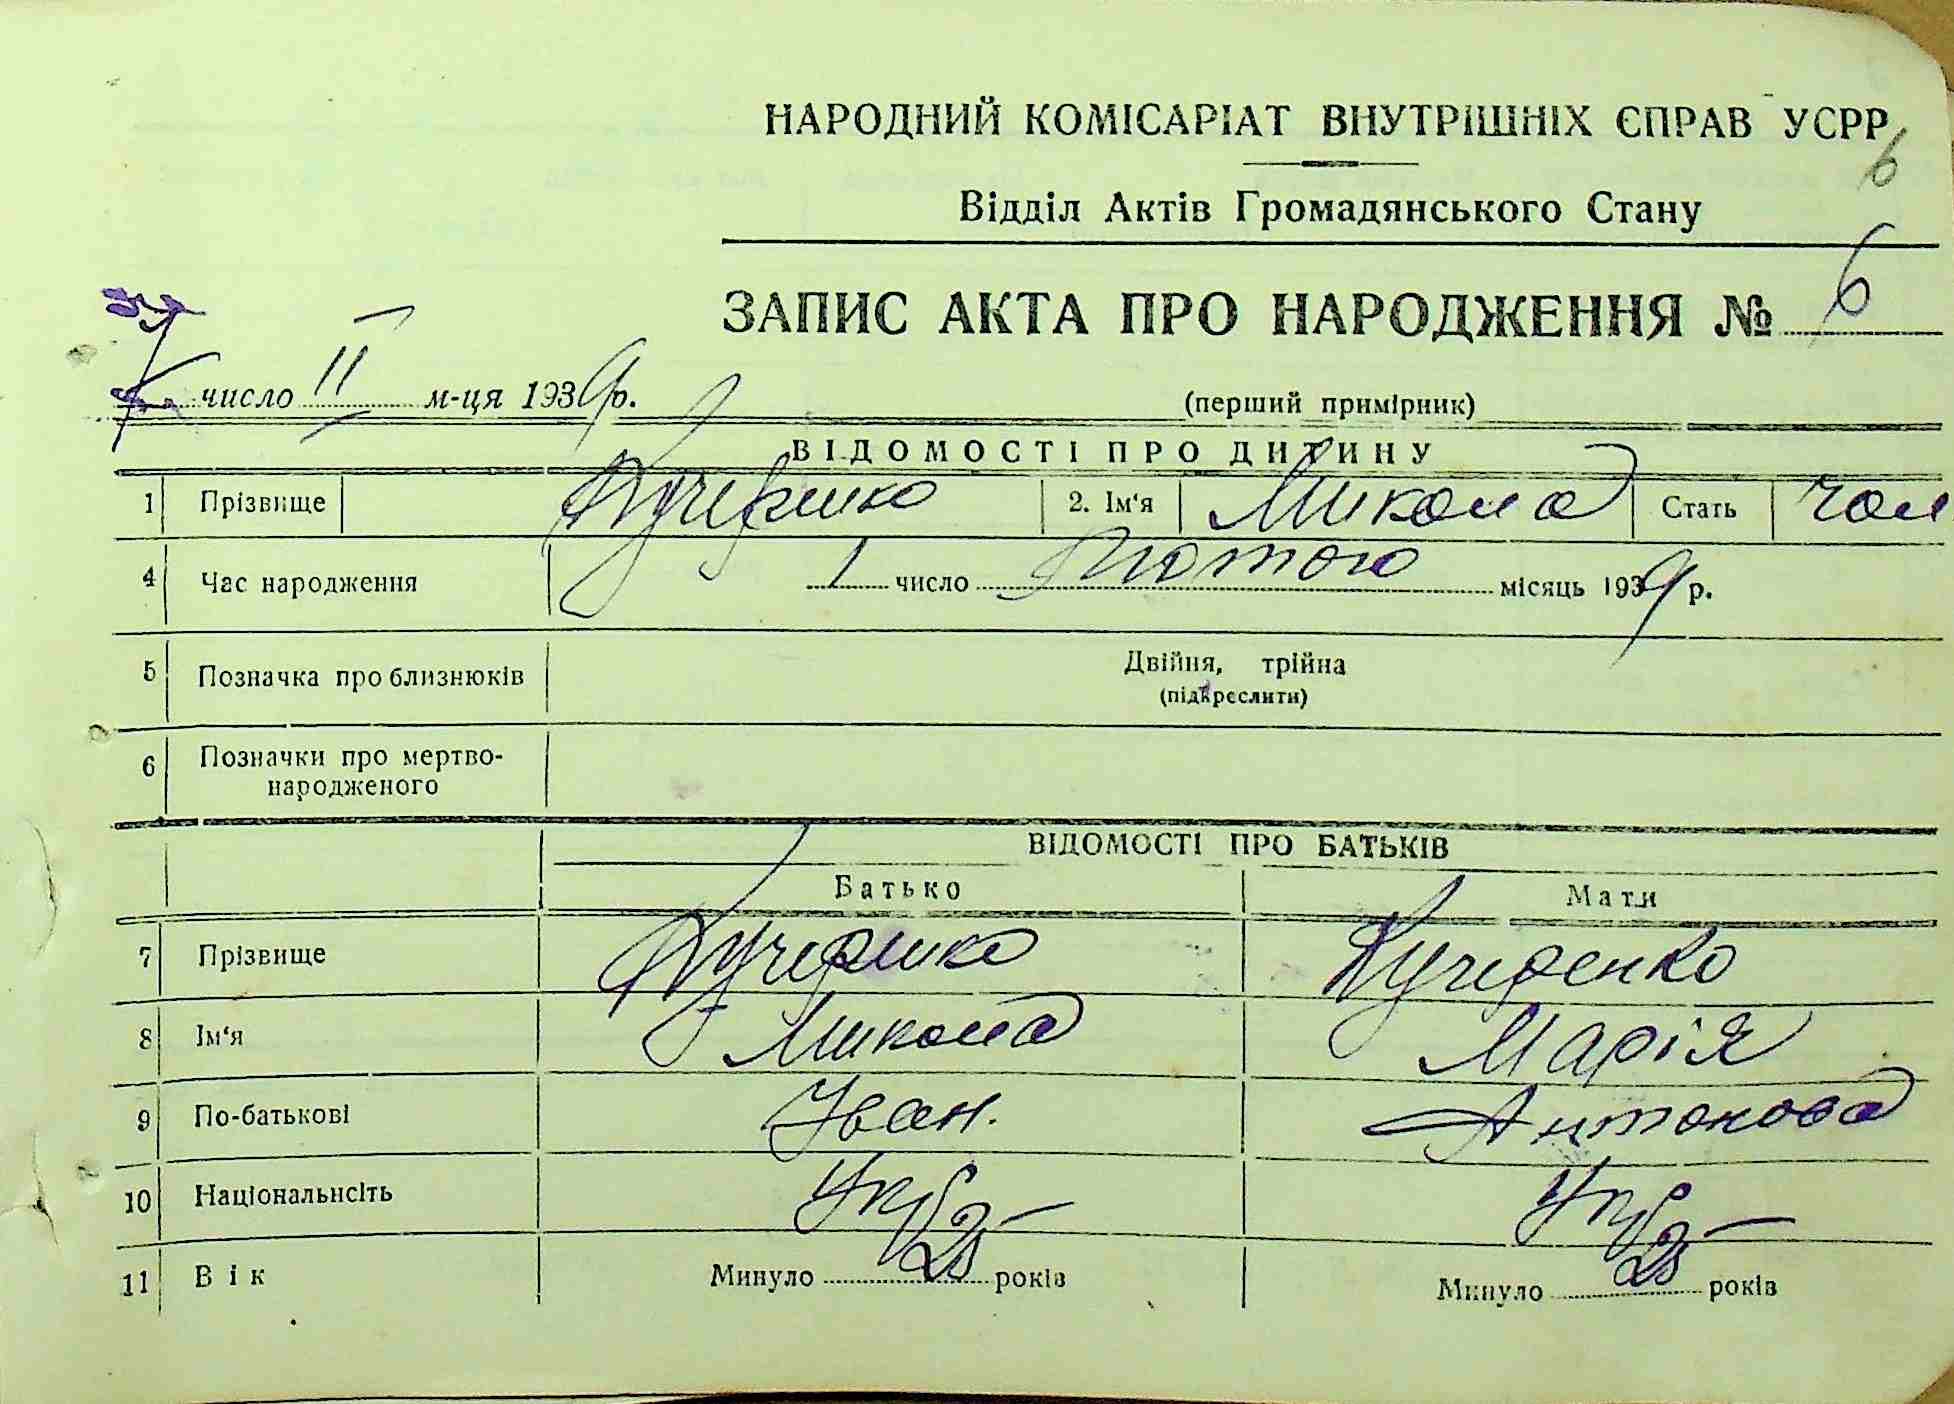 НАРОДНИЙ КОМІСАРІАТ ВНУТРІШНІХ СПРАВ УСРР
6
Відділ Актів Громадянського Стану
ЗАПИС АКТА ПРО НАРОДЖЕННЯ № 6
число II м-ця 1939 р.
(перший примірник)
ВІДОМОСТІ ПРО ДИТИНУ
1 Прізвище Кучеренко 2. Ім'я Микола Стать чол
4 Час народження 1 число Лютого місяць 1939 р.
5 Позначка про близнюків Двійня, трійна
(підкреслити)
6 Позначки про мертво-
народженого
ВІДОМОСТІ ПРО БАТЬКІВ
Батько Мати
7 Прізвище Кучеренко Кучеренко
8 Ім'я Микола Марія
9 По-батькові Іван. Антонова
10 Національність Укр Укр
11 Вік Минуло 25 років Минуло 25 років